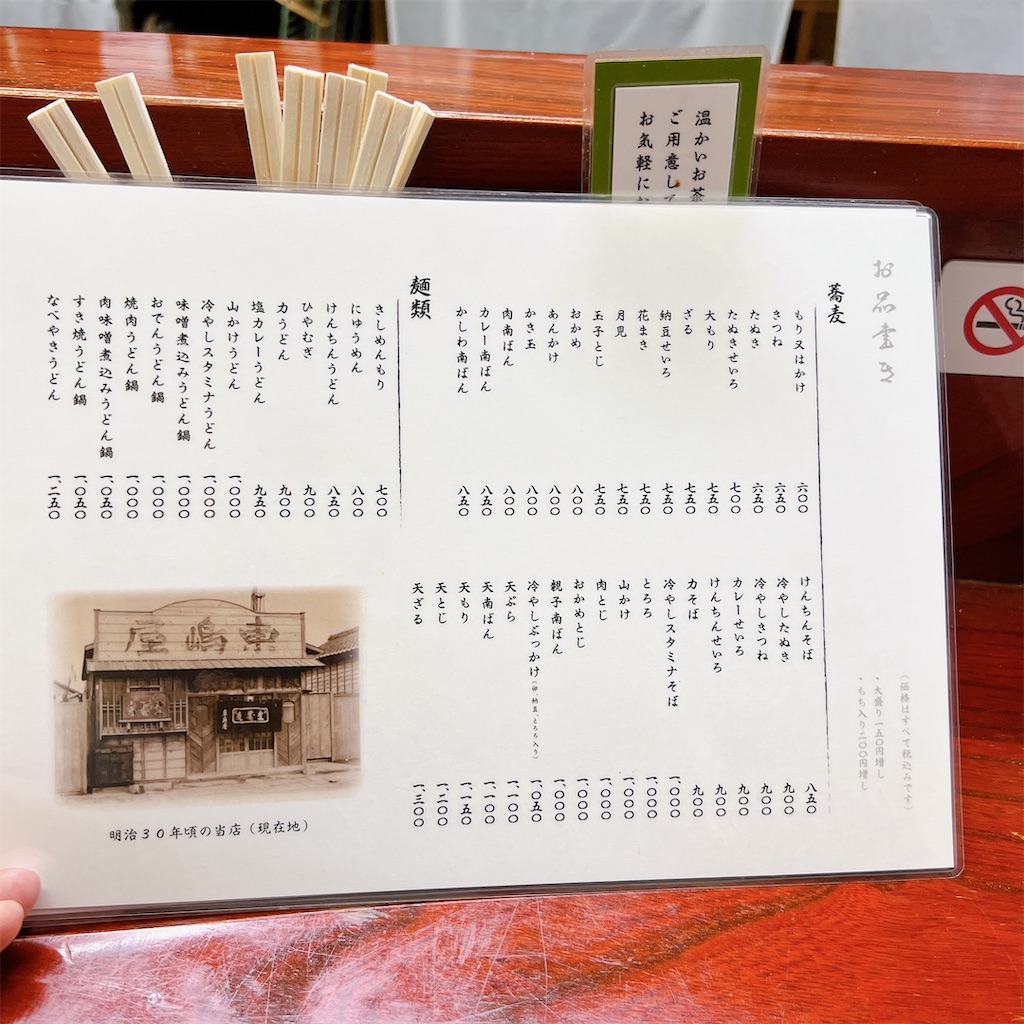 温かいお茶
ご用意して
お気軽にお
お品書き
(価格はすべて税込みです)
・大盛り一五〇円増し
・もち入り二〇〇円増し
蕎麦
もり又はかけ 六〇〇
きつね 六五〇
たぬき 六五〇
たぬきせいろ 七〇〇
大もり 七五〇
ざる 七五〇
納豆せいろ 七五〇
花まき 七五〇
月見 七五〇
玉子とじ 七五〇
おかめ 八〇〇
あんかけ 八〇〇
かき玉 八〇〇
肉南ばん 八〇〇
カレー南ばん 八五〇
かしわ南ばん 八五〇
けんちんそば 八五〇
冷やしたぬき 九〇〇
冷やしきつね 九〇〇
カレーせいろ 九〇〇
けんちんせいろ 九〇〇
力そば 九〇〇
冷やしスタミナそば 一、〇〇〇
とろろ 一、〇〇〇
山かけ 一、〇〇〇
肉とじ 一、〇〇〇
おかめとじ 一、〇〇〇
親子南ばん 一、〇〇〇
冷やしぶっかけ(卵、納豆、とろろ入り) 一、〇五〇
天ぷら 一、一〇〇
天南ばん 一、一〇〇
天もり 一、一五〇
天とじ 一、二〇〇
天ざる 一、三〇〇
麺類
きしめんもり 七〇〇
にゅうめん 八〇〇
けんちんうどん 八五〇
ひやむぎ 九〇〇
力うどん 九〇〇
塩カレーうどん 九五〇
山かけうどん 一、〇〇〇
冷やしスタミナうどん 一、〇〇〇
味噌煮込みうどん鍋 一、〇〇〇
おでんうどん鍋 一、〇〇〇
焼肉うどん鍋 一、〇〇〇
肉味噌煮込みうどん鍋 一、〇五〇
すき焼うどん鍋 一、〇五〇
なべやきうどん 一、二五〇
東嶋屋
明治30年頃の当店(現在地)